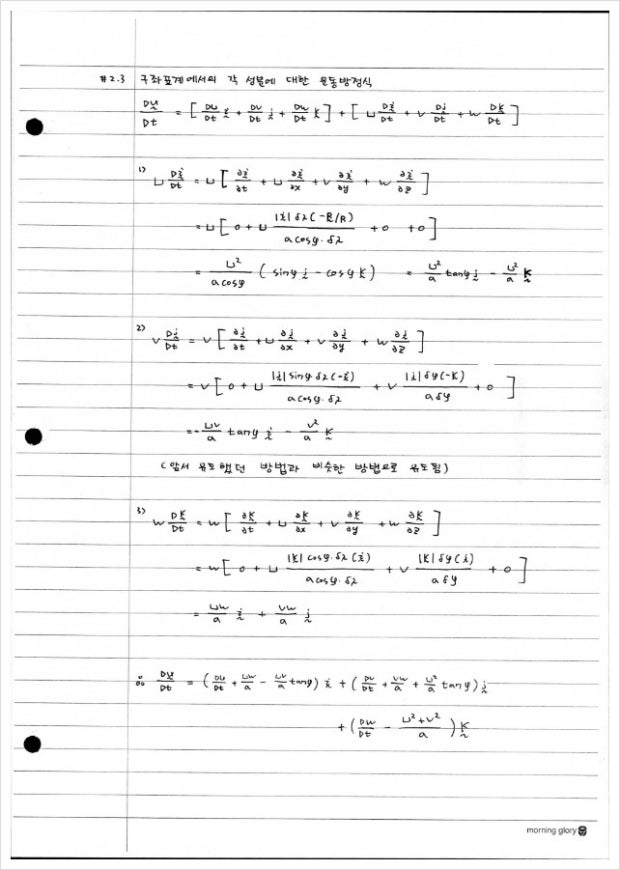 #2.3 구좌표계에서의 각 성분에 대한 운동방정식
Du/Dt = [ Du/Dt i + Dv/Dt j + Dw/Dt k ] + [ u Di/Dt + v Dj/Dt + w Dk/Dt ]
1) u Di/Dt = u [ ∂i/∂t + u ∂i/∂x + v ∂i/∂y + w ∂i/∂z ]
= u [ 0 + u |i| δλ(-R/R) / a cosφ·δλ + 0 + 0 ]
= u² / a cosφ ( sinφ j - cosφ k ) = u²/a tanφ j - u²/a k
2) v Dj/Dt = v [ ∂j/∂t + u ∂j/∂x + v ∂j/∂y + w ∂j/∂z ]
= v [ 0 + u |j| sinφ δλ(-i) / a cosφ·δλ + v |j| δφ(-k) / a δφ + 0 ]
= - uv/a tanφ i - v²/a k
(앞서 유도했던 방법과 비슷한 방법으로 유도됨)
3) w Dk/Dt = w [ ∂k/∂t + u ∂k/∂x + v ∂k/∂y + w ∂k/∂z ]
= w [ 0 + u |k| cosφ·δλ(i) / a cosφ·δλ + v |k| δφ(j) / a δφ + 0 ]
= uw/a i + vw/a j
∴ Du/Dt = ( Du/Dt + uw/a - uv/a tanφ ) i + ( Dv/Dt + vw/a + u²/a tanφ ) j
+ ( Dw/Dt - u²+v² / a ) k
morning glory